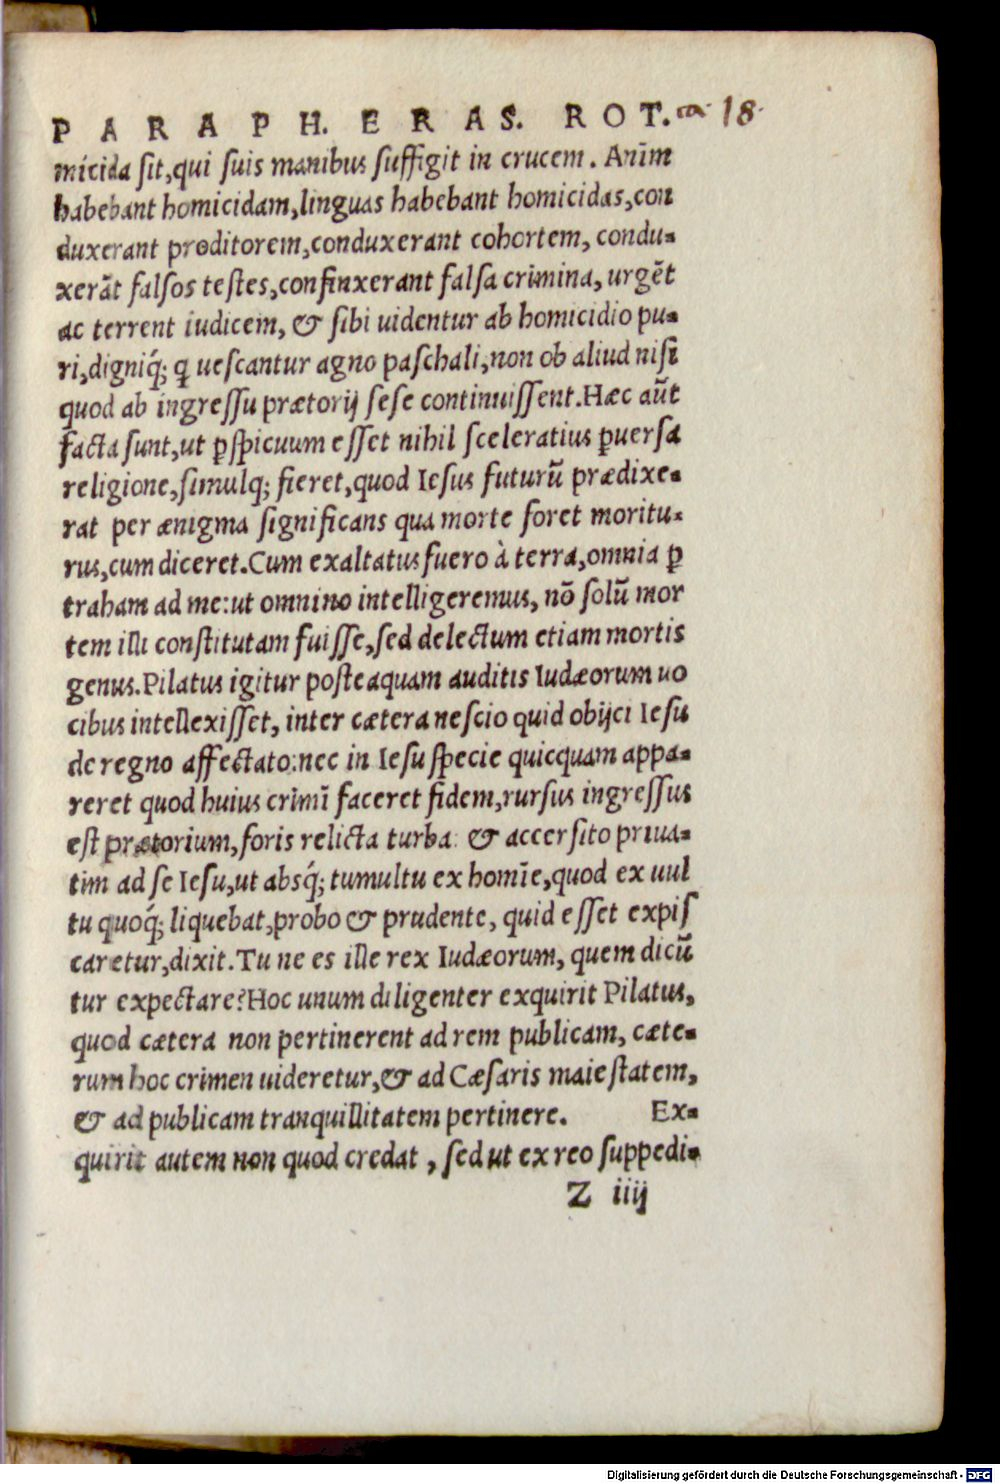 PARAPH. ERAS. ROT. ca. 18.
micida sit, qui suis manibus suffigit in crucem. Anīm
habebant homicidam, linguas habebant homicidas, con
duxerant proditorem, conduxerant cohortem, condu-
xerāt falsos testes, confinxerant falsa crimina, urgēt
ac terrent iudicem, & sibi uidentur ab homicidio pu-
ri, digniq́; ꝗ uescantur agno paschali, non ob aliud nisi
quod ab ingressu prætorij sese continuissent. Hæc aūt
facta sunt, ut ꝑspicuum esset nihil sceleratius ꝑuersa
religione, simulq; fieret, quod Iesus futurū prædixe-
rat per ænigma significans qua morte foret moritu-
rus, cum diceret. Cum exaltatus fuero à terra, omnia ꝑ
traham ad me: ut omnino intelligeremus, nō solū mor
tem illi constitutam fuisse, sed delectum etiam mortis
genus. Pilatus igitur posteaquam auditis Iudæorum uo
cibus intellexisset, inter cætera nescio quid obijci Iesu
de regno affectato: nec in Iesu specie quicquam appa-
reret quod huius crimī faceret fidem, rursus ingressus
est prætorium, foris relicta turba: & accersito priua-
tim ad se Iesu, ut absq́; tumultu ex homīe, quod ex uul
tu quoq́; liquebat, probo & prudente, quid esset expis
caretur, dixit. Tu ne es ille rex Iudæorum, quem dicū
tur expectare? Hoc unum diligenter exquirit Pilatus,
quod cætera non pertinerent ad rem publicam, cæte-
rum hoc crimen uideretur, & ad Cæsaris maiestatem,
& ad publicam tranquillitatem pertinere. Ex-
quirit autem non quod credat, sed ut ex reo suppedi-
Z iiij
Digitalisierung gefördert durch die Deutsche Forschungsgemeinschaft - DFG